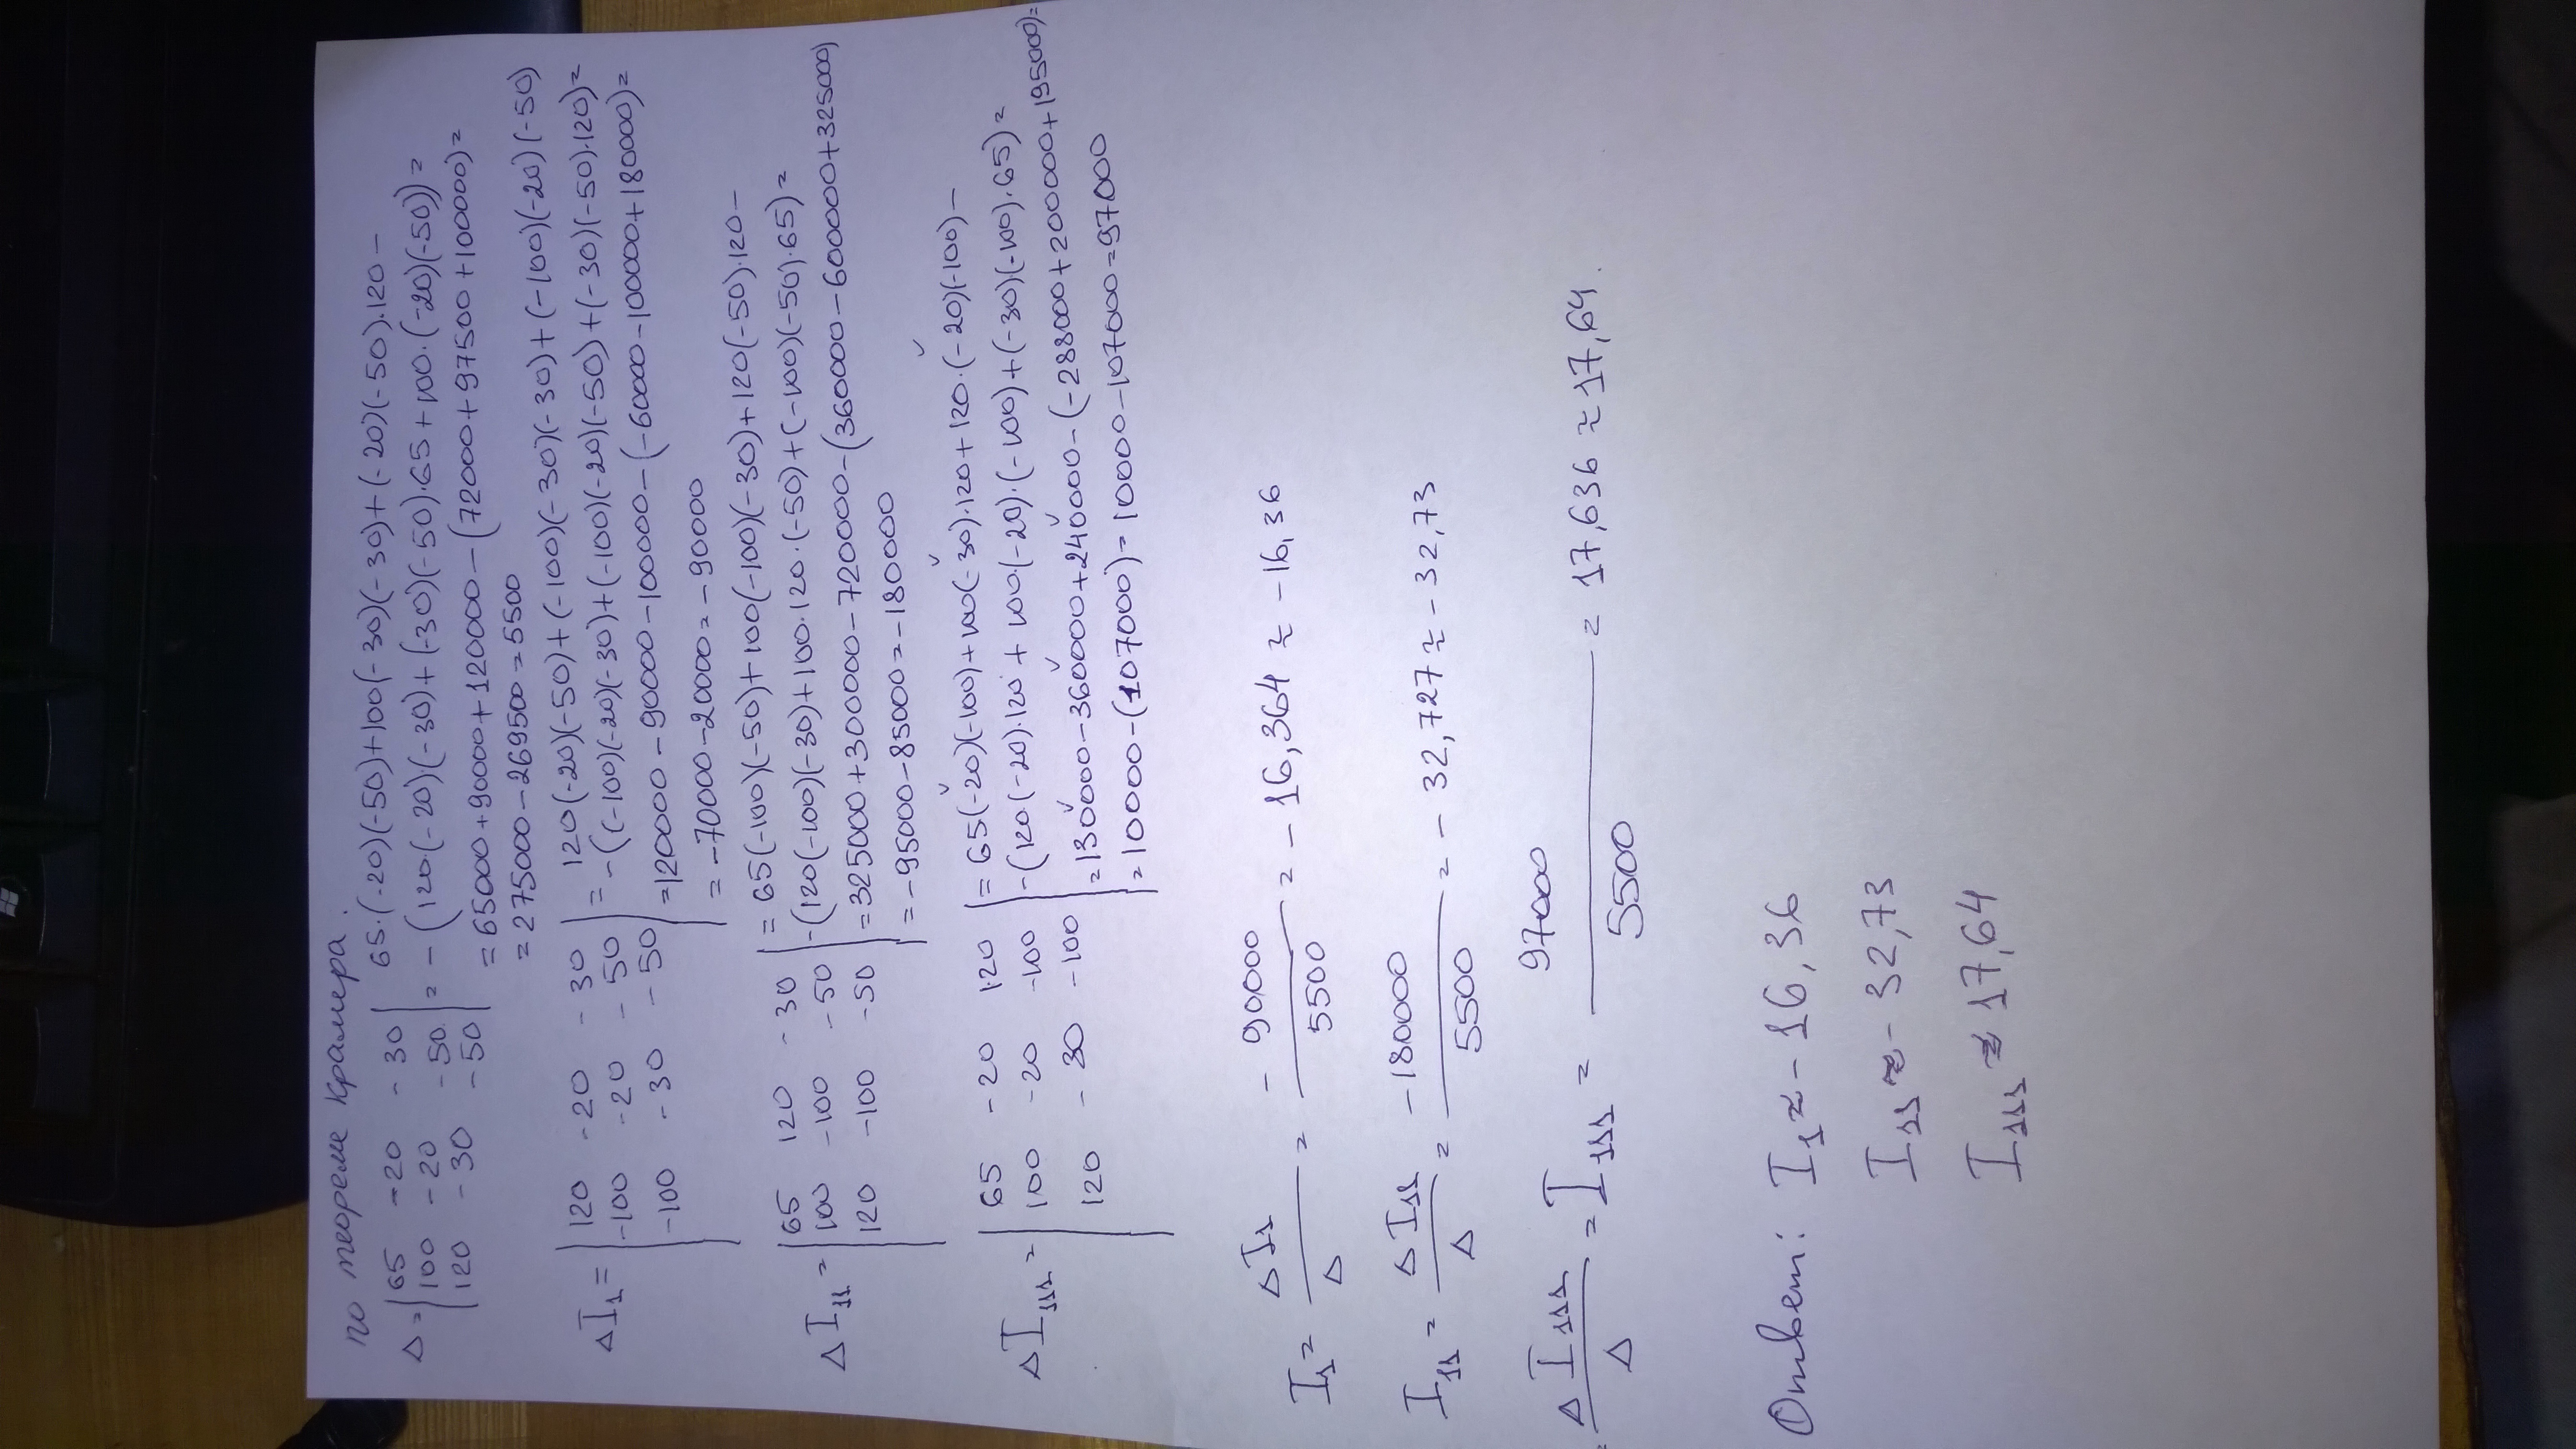 по теореме Крамера.
Δ = |65 -20 -30| 65·(-20)(-50)+100(-30)(-30)+(-20)(-50)·120-
|100 -20 -50| = -(120·(-20)(-30)+(-30)(-50)·65+100·(-20)(-50))=
|120 -30 -50| =65000+90000+120000-(72000+97500+100000)=
=275000-269500=5500
ΔI₁= |120 -20 -30| = 120(-20)(-50)+(-100)(-30)(-30)+(-100)(-20)(-50)
|-100 -20 -50| -((-100)(-20)(-30)+(-100)(-20)(-50)+(-30)(-50)·120)=
|-100 -30 -50| =120000-90000-100000-(-60000-100000+180000)=
=-70000-20000=-90000
ΔI₁₁= |65 120 -30| = 65(-100)(-50)+100(-100)(-30)+120(-50)·120-
|100 -100 -50| -(120(-100)(-30)+100·120·(-50)+(-100)(-50)·65)=
|120 -100 -50| =325000+300000-720000-(360000-600000+325000)
=-95000-85000=-180000
ΔI₁₁₁= |65 -20 120| = 65(-20)(-100)+100(-30)·120+120·(-20)(-100)-
|100 -20 -100| -(120·(-20)·120+100(-20)·(-100)+(-30)(-100)·65)=
|120 -30 -100| =130000-360000+240000-(-288000+200000+195000)=
=10000-(107000)=10000-107000=97000
I₁= ΔI₁/Δ = -90000/5500 = -16,364 ≈ -16,36
I₁₁= ΔI₁₁/Δ = -180000/5500 = -32,727 ≈ -32,73
= ΔI₁₁₁/Δ = I₁₁₁ = 97000/5500 = 17,636 ≈ 17,64.
Ответ: I₁ ≈ -16,36
I₁₁ ≈ -32,73
I₁₁₁ ≈ 17,64